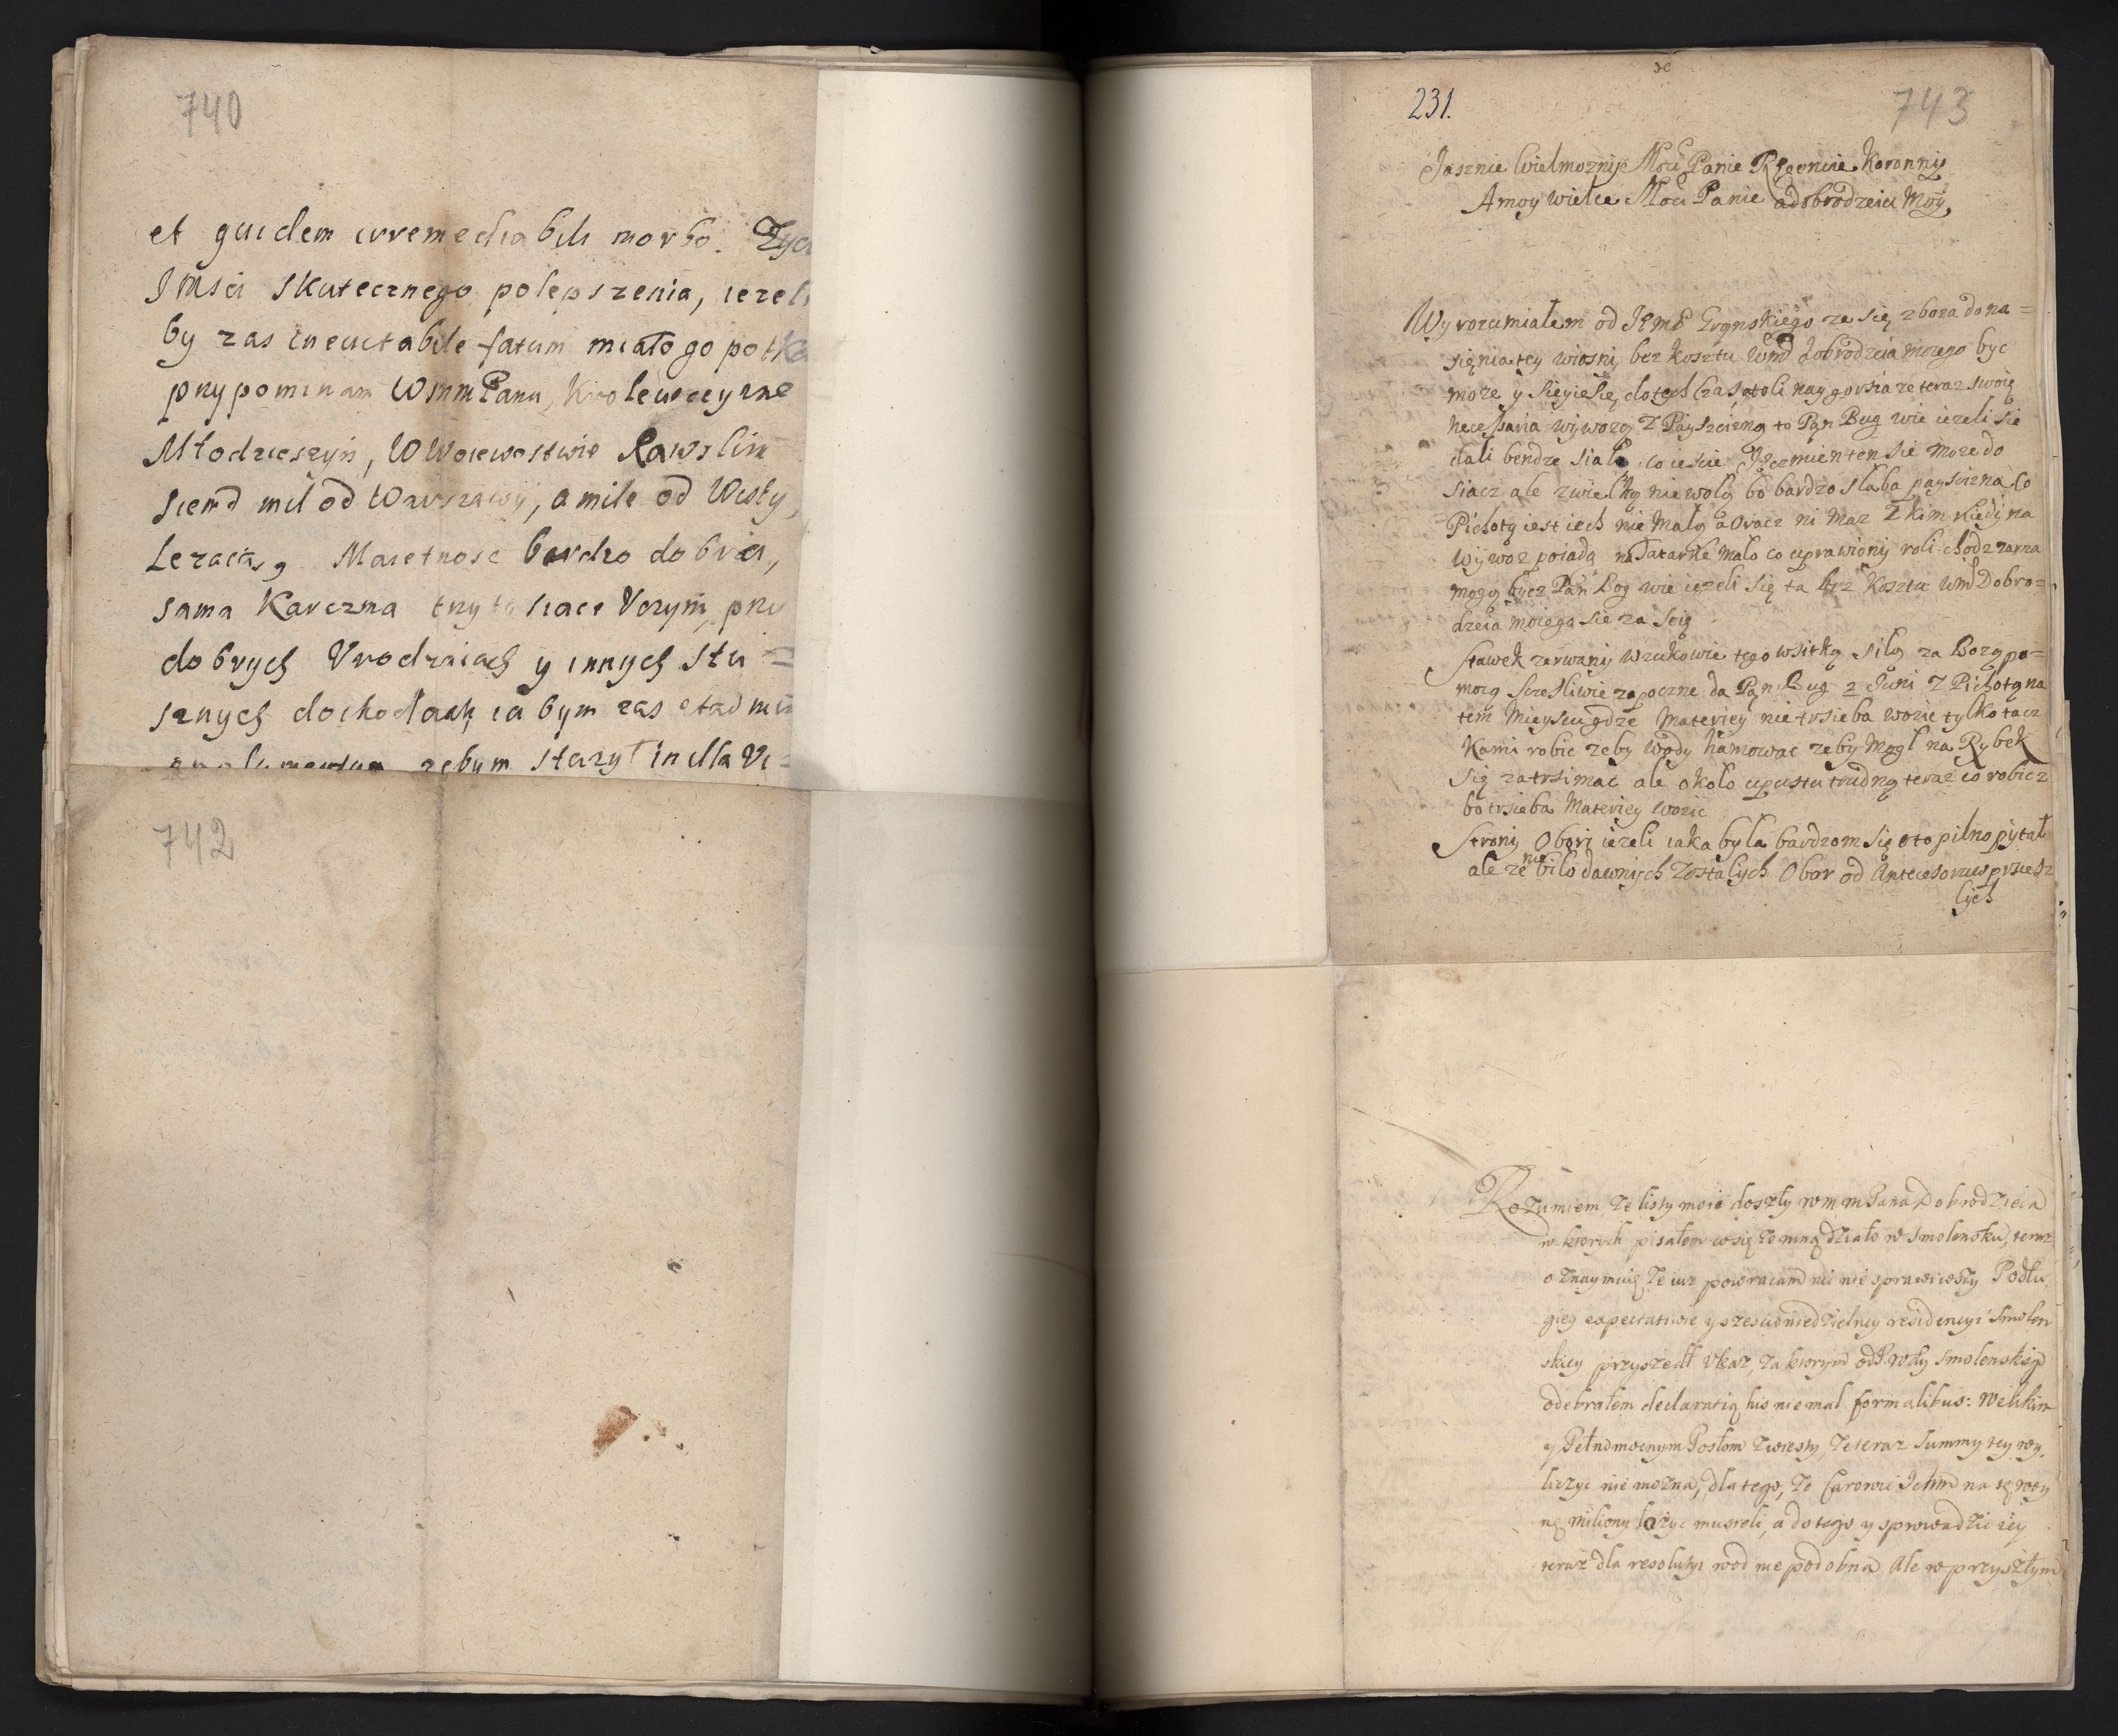 740
et quidem irremediabili morbo. Zyc
Imsci skutecznego polepszenia, iezeli
by zas ineuctabile fatum miało go potka
przypominam WmmPanu, Krolewczyzne
Młodzieszyn, W Woiewostwie Rawskim
siedm mil od Warszawy, a mile od Wisły,
Lezacą, Maietnosc bardzo dobra,
sama Karczma trzy tysiace Vczyni, przy
dobrych Vrodzaiach y innych słu=
sznych dochodach, ia bym zas
zebym słuzył in illa Vi=
742
231.
743
Jasznie Wielmoznij Mosci Panie Regencie Koronnij
Amoy wielce Mosci Panie a dobrodzeiu Moy
Wyrozumiałem od Jemci Grynskiego ze się zboza do na=
się nia tey wiosnij bez kosztu Wmci dobrodzeia moiego byc
moze y Sieyie się, do tych czas, roli naygorsia ze teraz swoię
necessaria wywozą Z Paysczizną to Pan Bug wie iezeli sie
dali bendze siało, co iescie Jęczmien ten sie moze do
siacz ale z wielką niewolą bo bardzo słaba paysczizna, co
Pichoty iest iech nie mało a oracz ni maz Z kim kiedy na
wywoz poiadą na Tatarke mało co uprawionij roli chodz zarza
mogą bycz Pan Bog wie iezeli się ta bez kosztu Wmci Dobro=
dzeia moiego sie za seię
Stawek zerwanij wrukowie tego wsitką siłą za Bozą po=
mocą Scześliwie zapoczne da Pan Bug 2 Juni Z Pichotą na
tem Mieyscu gdze Materiey nie trsieba wozic tylko tacz
kami robic zeby wody hamowac zeby mogł na Rybek
się zatrsimac ale około upustu trudno teraz co robicz
bo trsieba Materiey wozic
Stroni Obori iezeli iaka była bardzom się o to pilno pytał
ale ze nie biło dawnych zostałych Obor od Antecesoruw prsiesz
łych
Rozumiem ze listy moie doszły wm m Pana Dobrodzieia
w ktorych pisałem co się ze mną działo w Smolensku, teraz
oznaymuię ze iuz powracam nic nie sprawiwszy Podłu
giey expectatiwie y szesciuniedzielney residencyi Smolen
skiey przyszedł Vkaz, za ktorym od Wdy Smolenskiego
odebrałem declaratią his niemal formalibus: Welikim
y Pełnomocnym Posłom zwiesty, ze teraz Summy tey wy,
liczyc nie mozna, dla tego, ze Carowie Ichmc na tę woy
nę miliony łozyc musieli, a do tego y sprowadzic iey
teraz dla resolutyi wod nie podobna. Ale w przyszłym